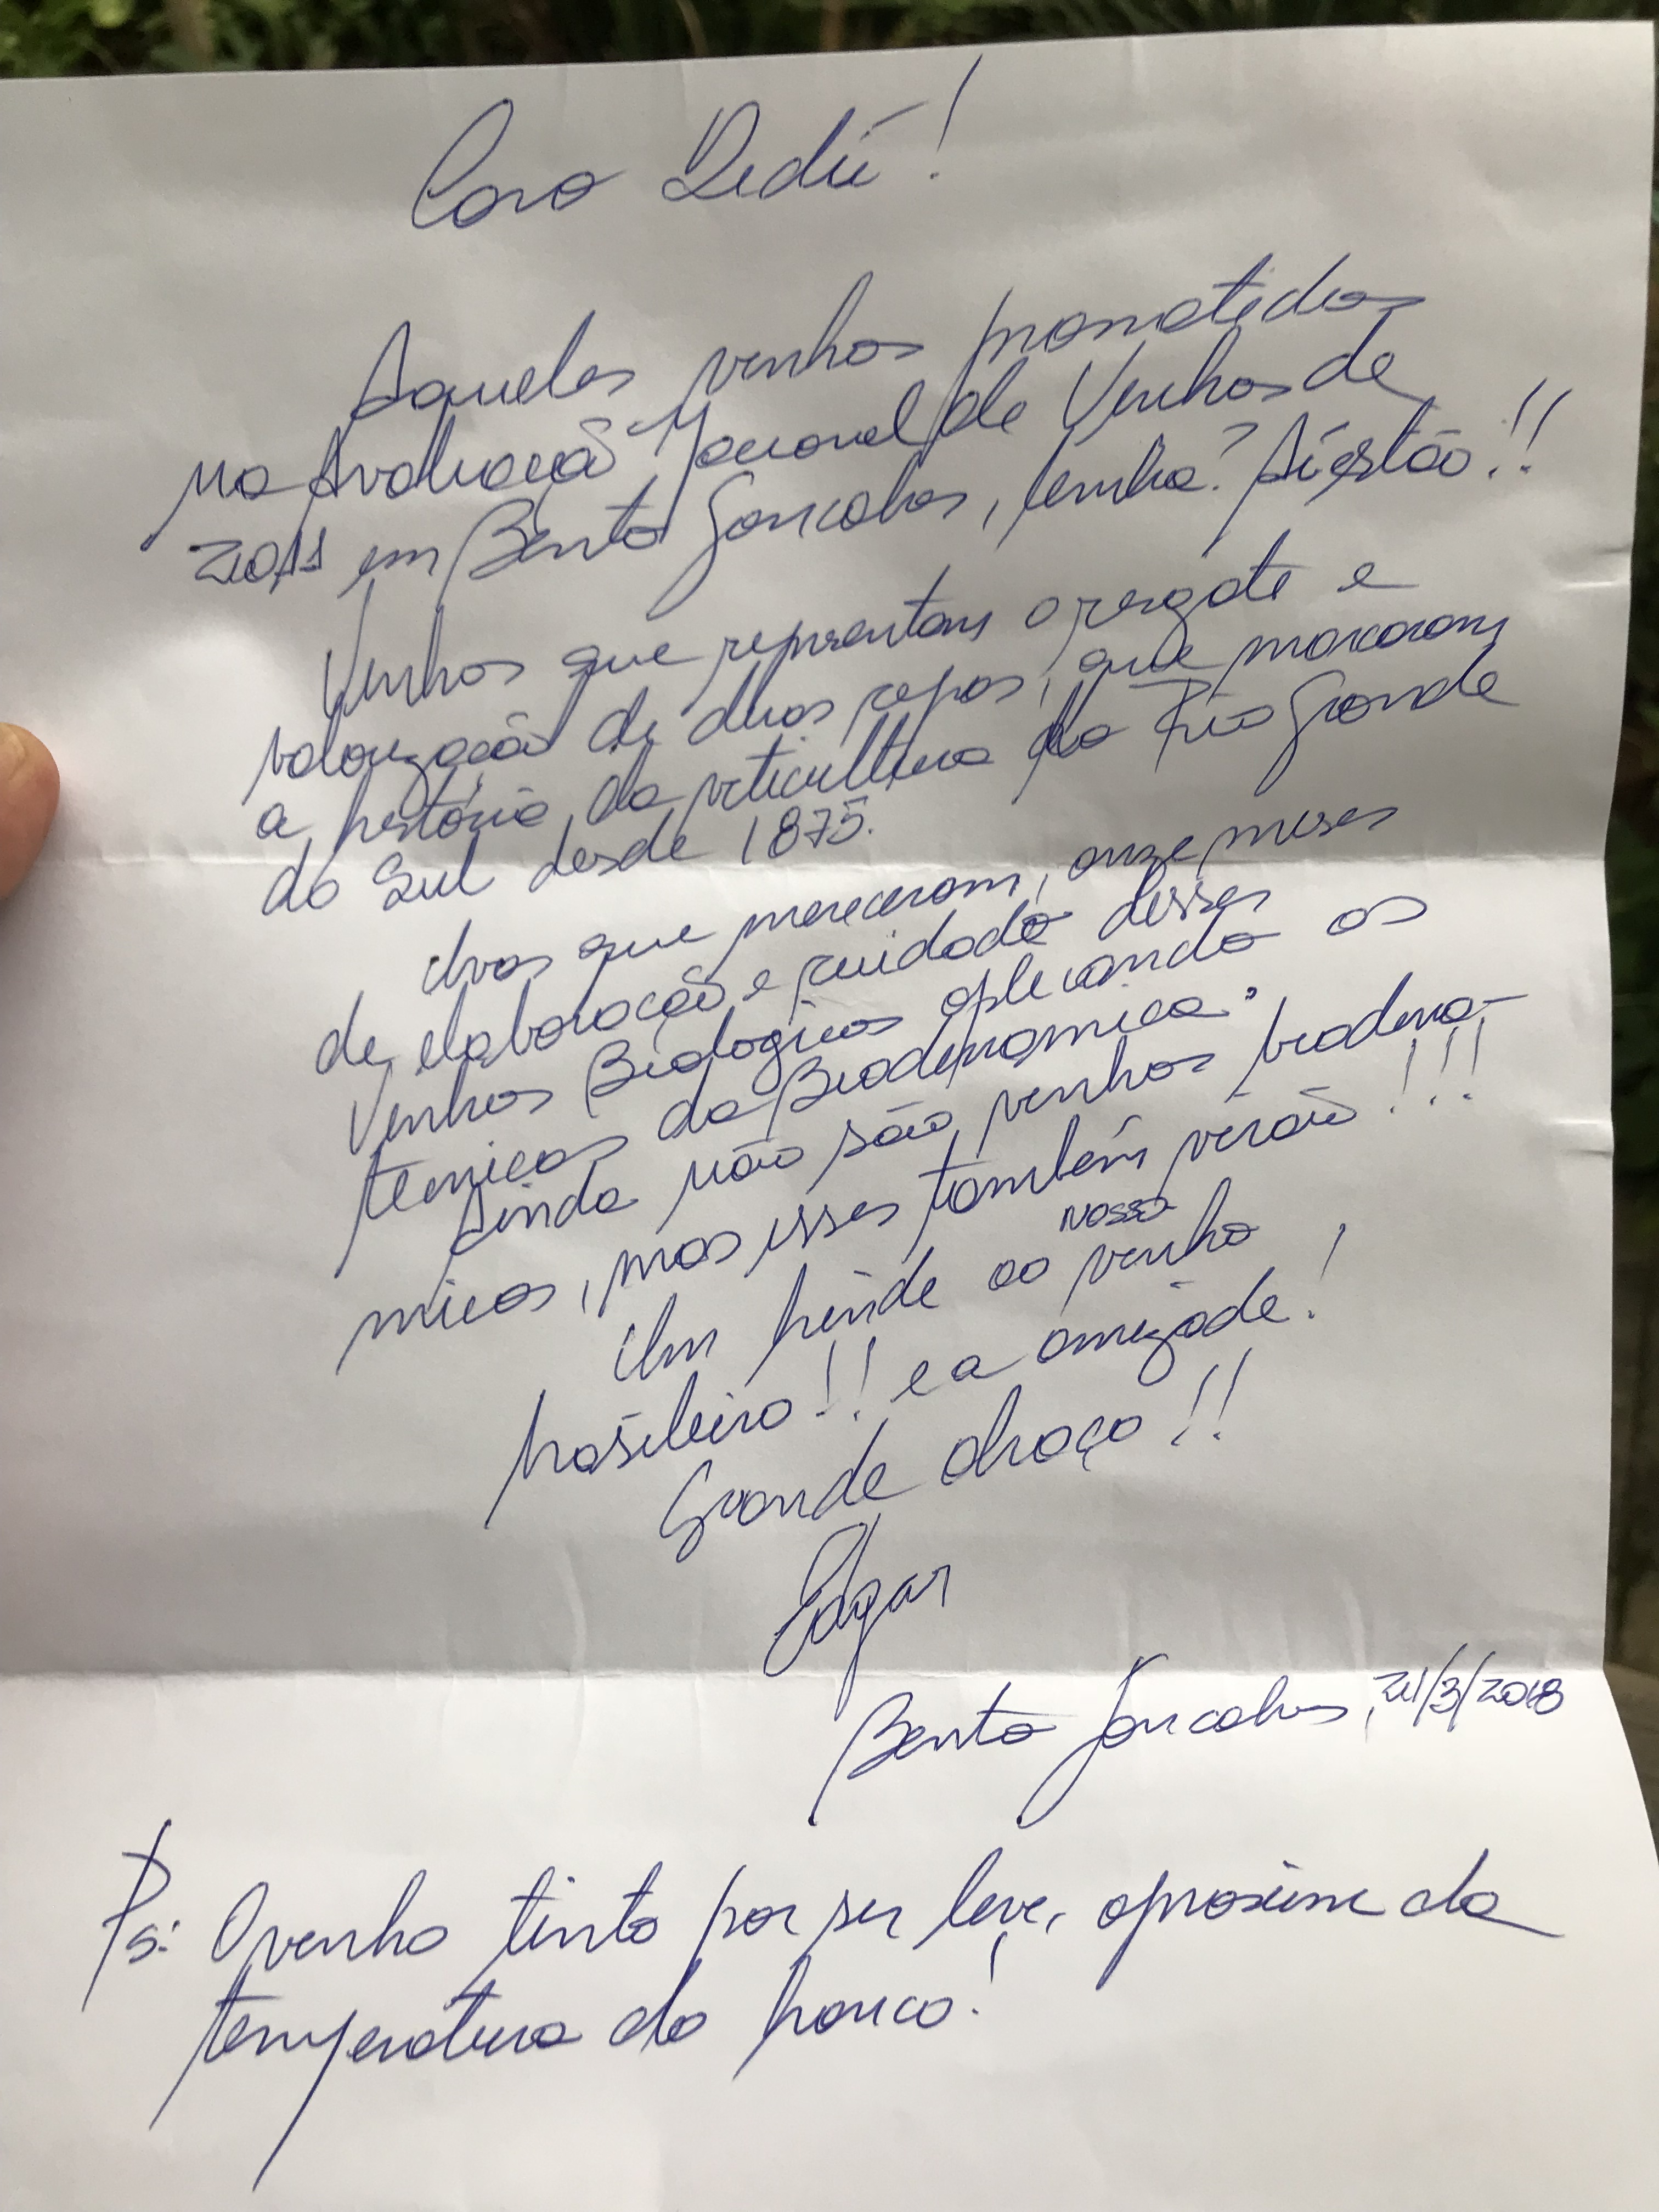 Caro Dedé!
Aqueles vinhos prometidos
na Avaliação Nacional de Vinhos de
2011 em Bento Gonçalves, lembra? Aí estão!!
Vinhos que representam o resgate e
valorização de duas cepas, que marcaram
a história da viticultura do Rio Grande
do Sul desde 1875.
Uvas que mereceram, onze meses
de elaboração e cuidado desses
Vinhos Biologicos aplicando os
tecnicas da Biodinamica.
Ainda não são vinhos biodina-
micos, mas isses também virão!!!
Um brinde ao nosso vinho
brasileiro!! e a amizade!
Grande abraço!!
Edgar
Bento Goncalves, 21/3/2018
Ps: O vinho tinto por ser leve, aproxime da
temperatura do branco!